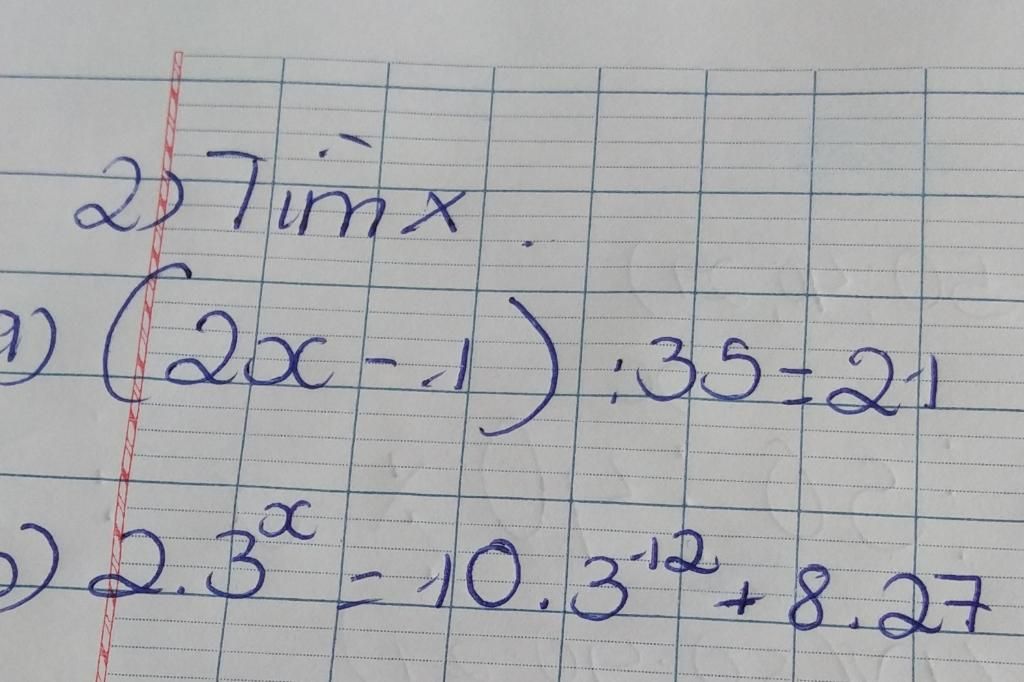 2) Tìm x.
a) (2x - 1) : 35 = 21
b) 2.3^x = 10.3^12 + 8.27